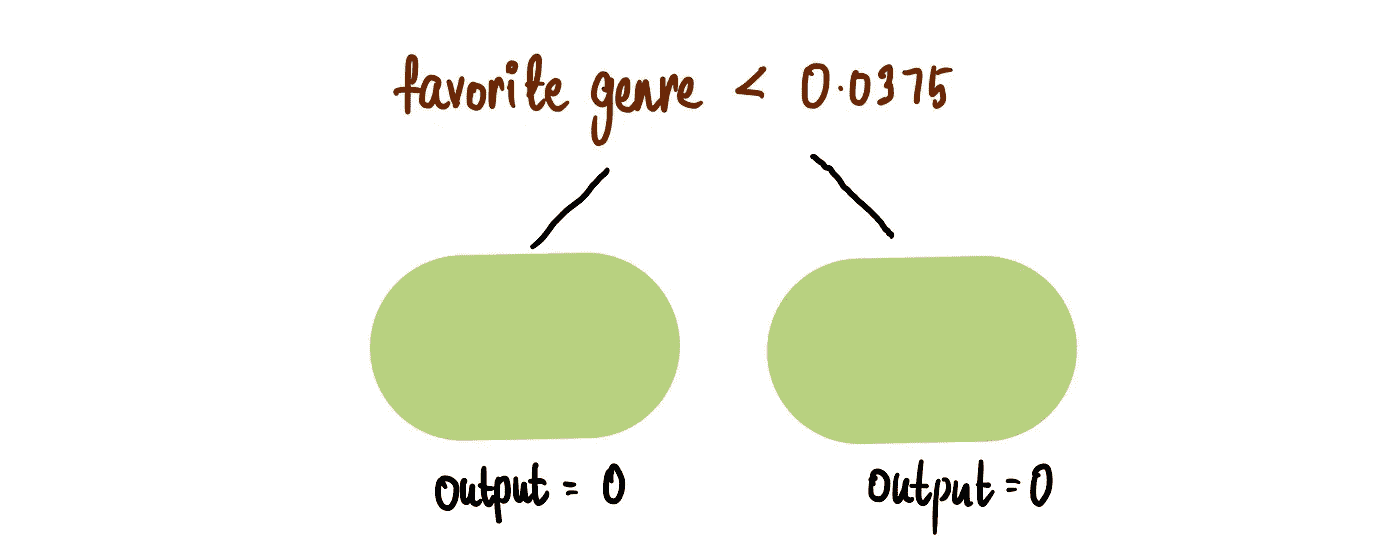 favorite genre < 0.0375
output = 0
output = 0